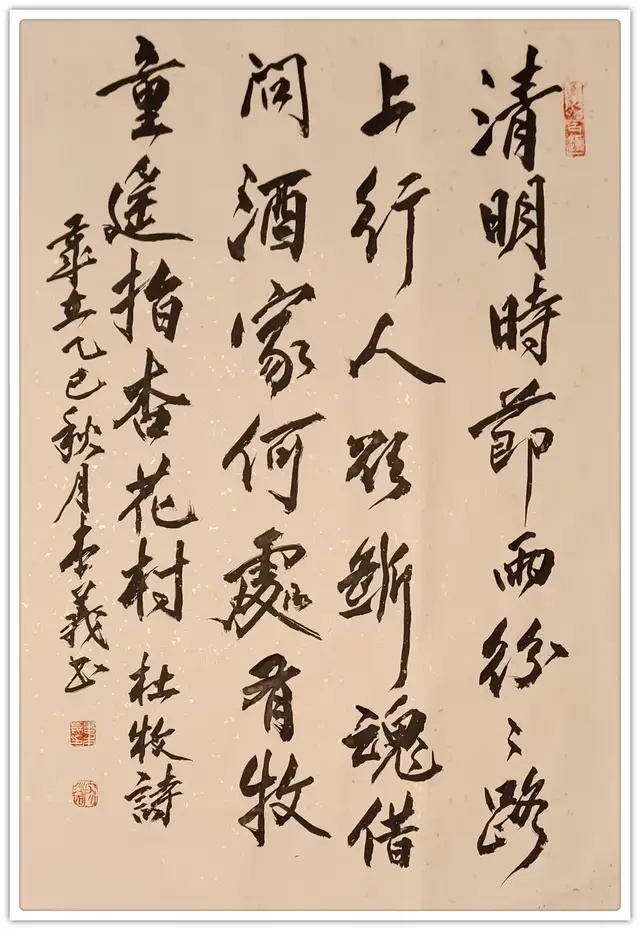 清明時節雨紛〻路
上行人欲斷魂借
問酒家何處有牧
童遥指杏花村 杜牧詩
歲在乙巳秋月義书